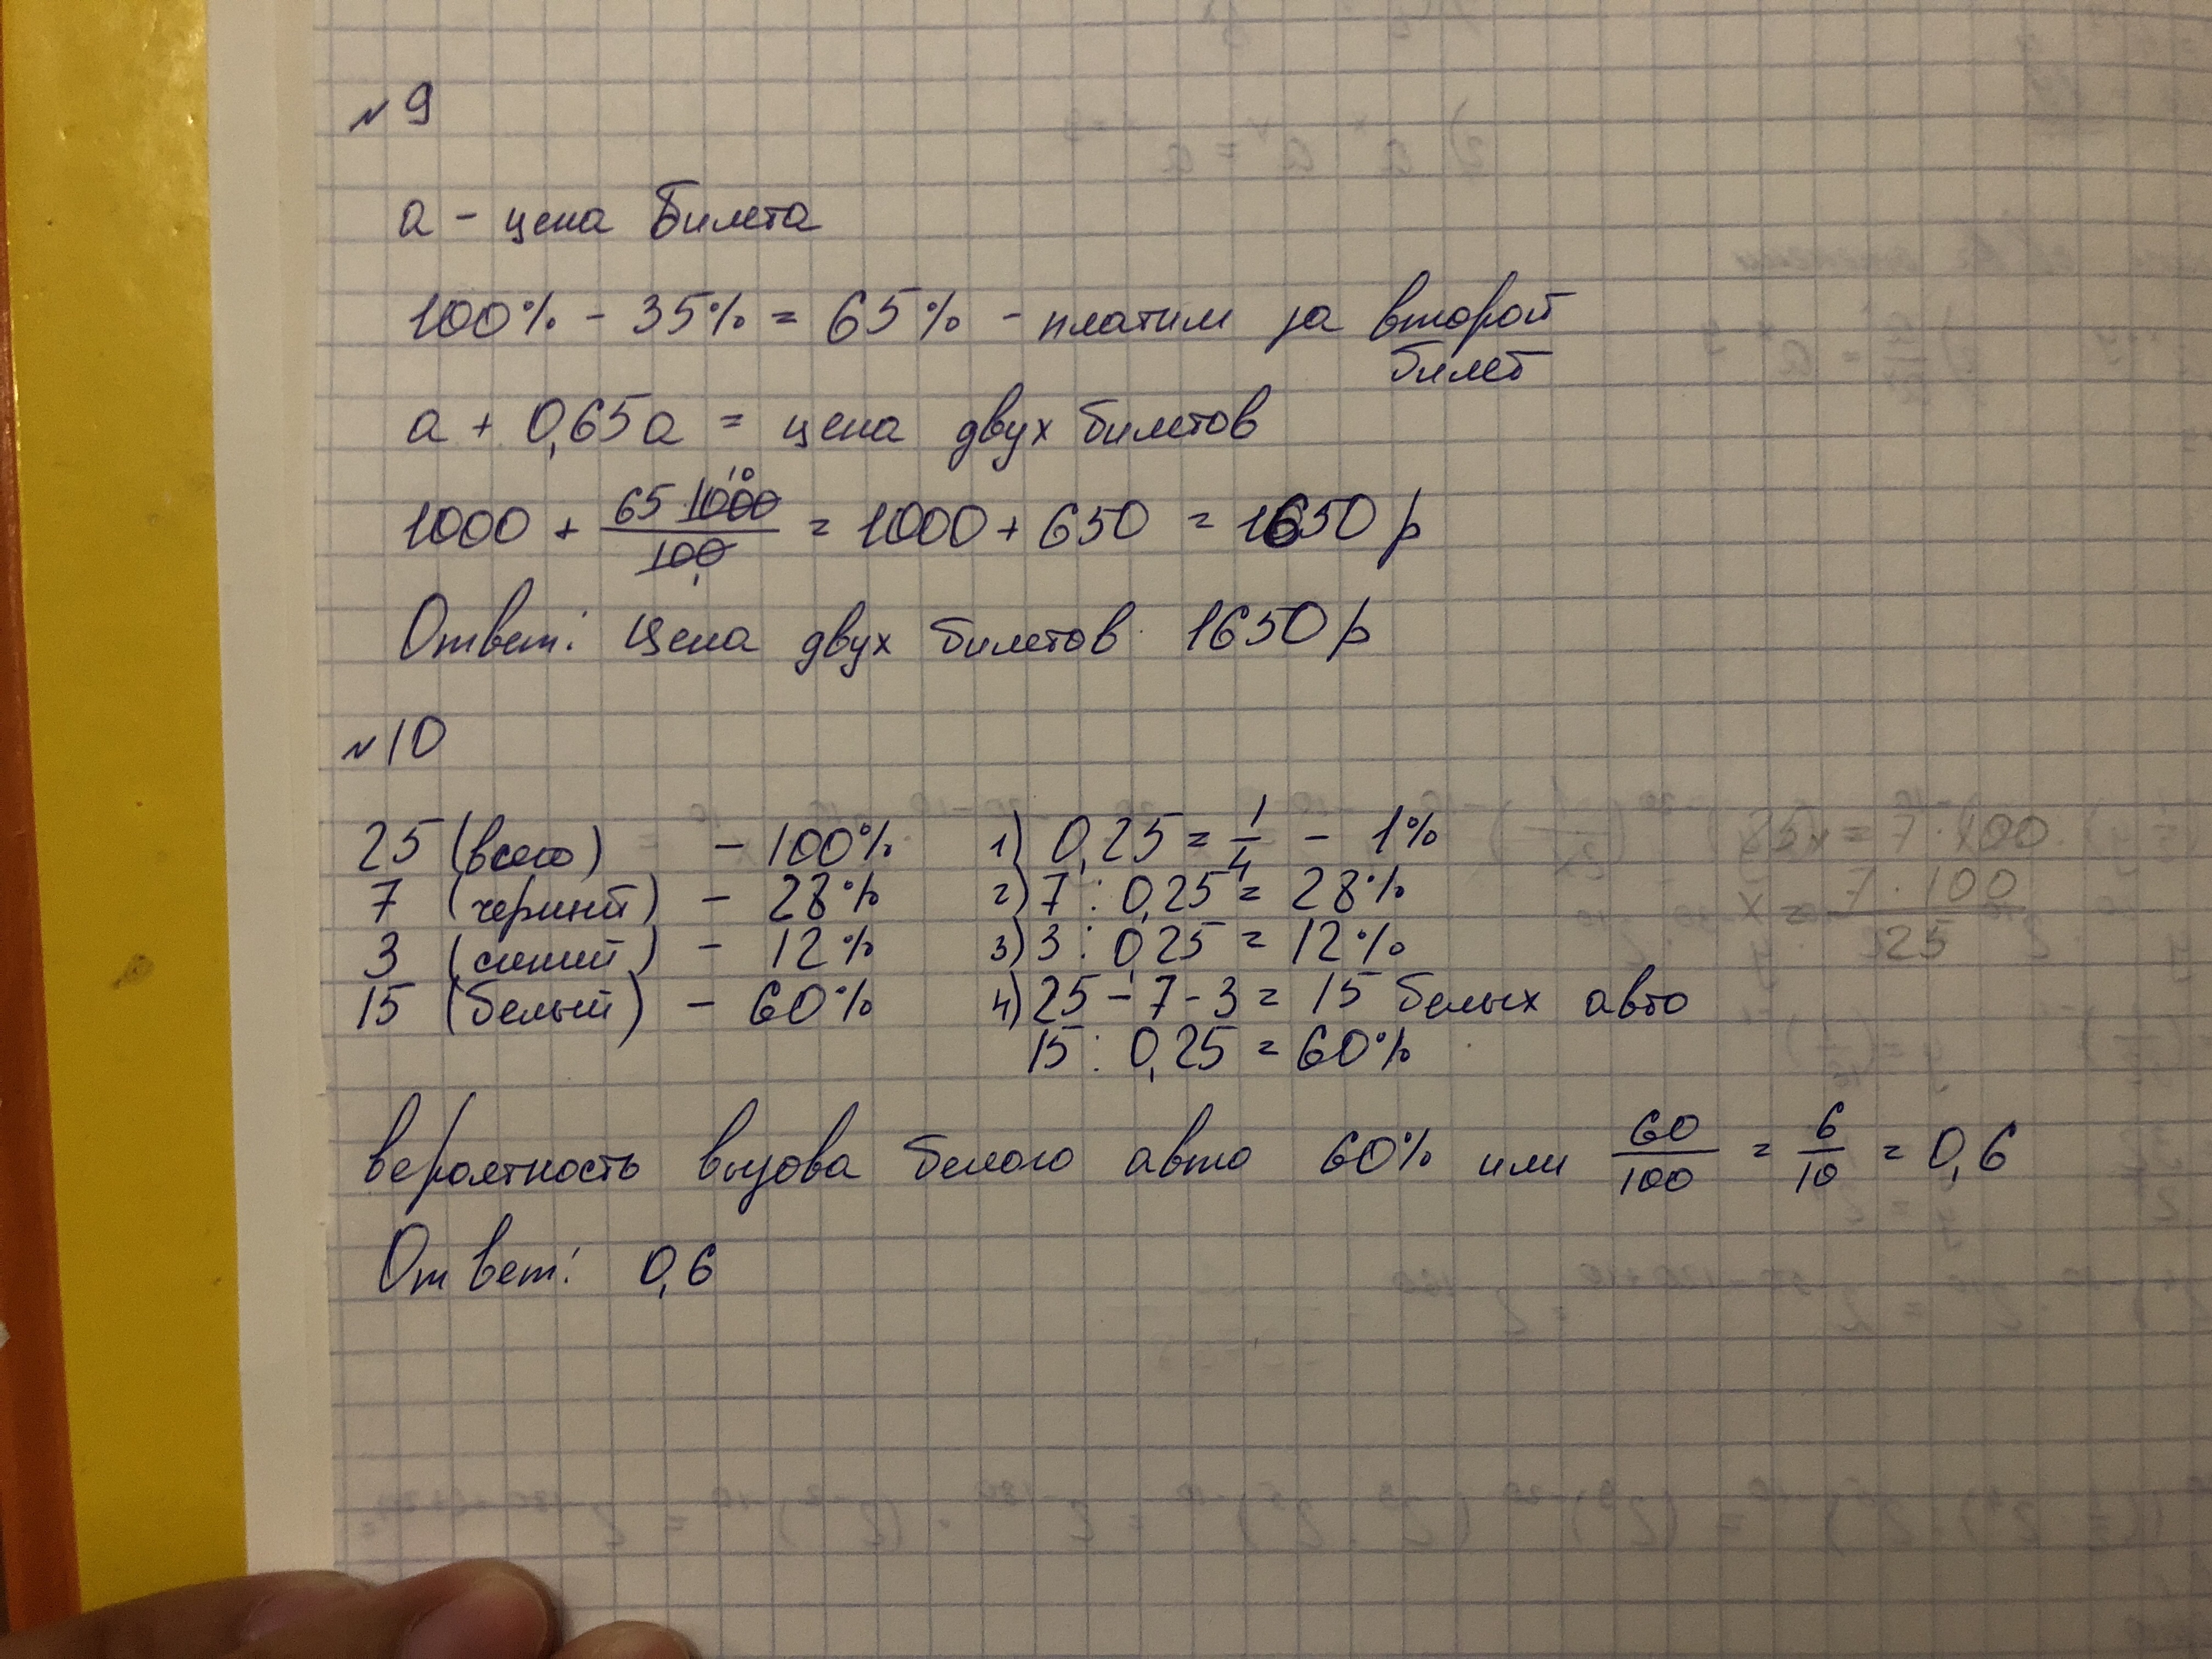 №9
a - цена билета
100% - 35% = 65% - платим за второй
билет
a + 0,65a = цена двух билетов
1000 + 65·1000/100 = 1000 + 650 = 1650 р
Ответ: Цена двух билетов 1650 р
№10
25 (всего) - 100% 1) 0,25 = 1/4 - 1%
7 (черный) - 28% 2) 7 : 0,25 = 28%
3 (синий) - 12% 3) 3 : 0,25 = 12%
15 (белый) - 60% 4) 25 - 7 - 3 = 15 белых авто
15 : 0,25 = 60%
25x = 7·100
x = 7·100/25
вероятность вызова белого авто 60% или 60/100 = 6/10 = 0,6
Ответ: 0,6